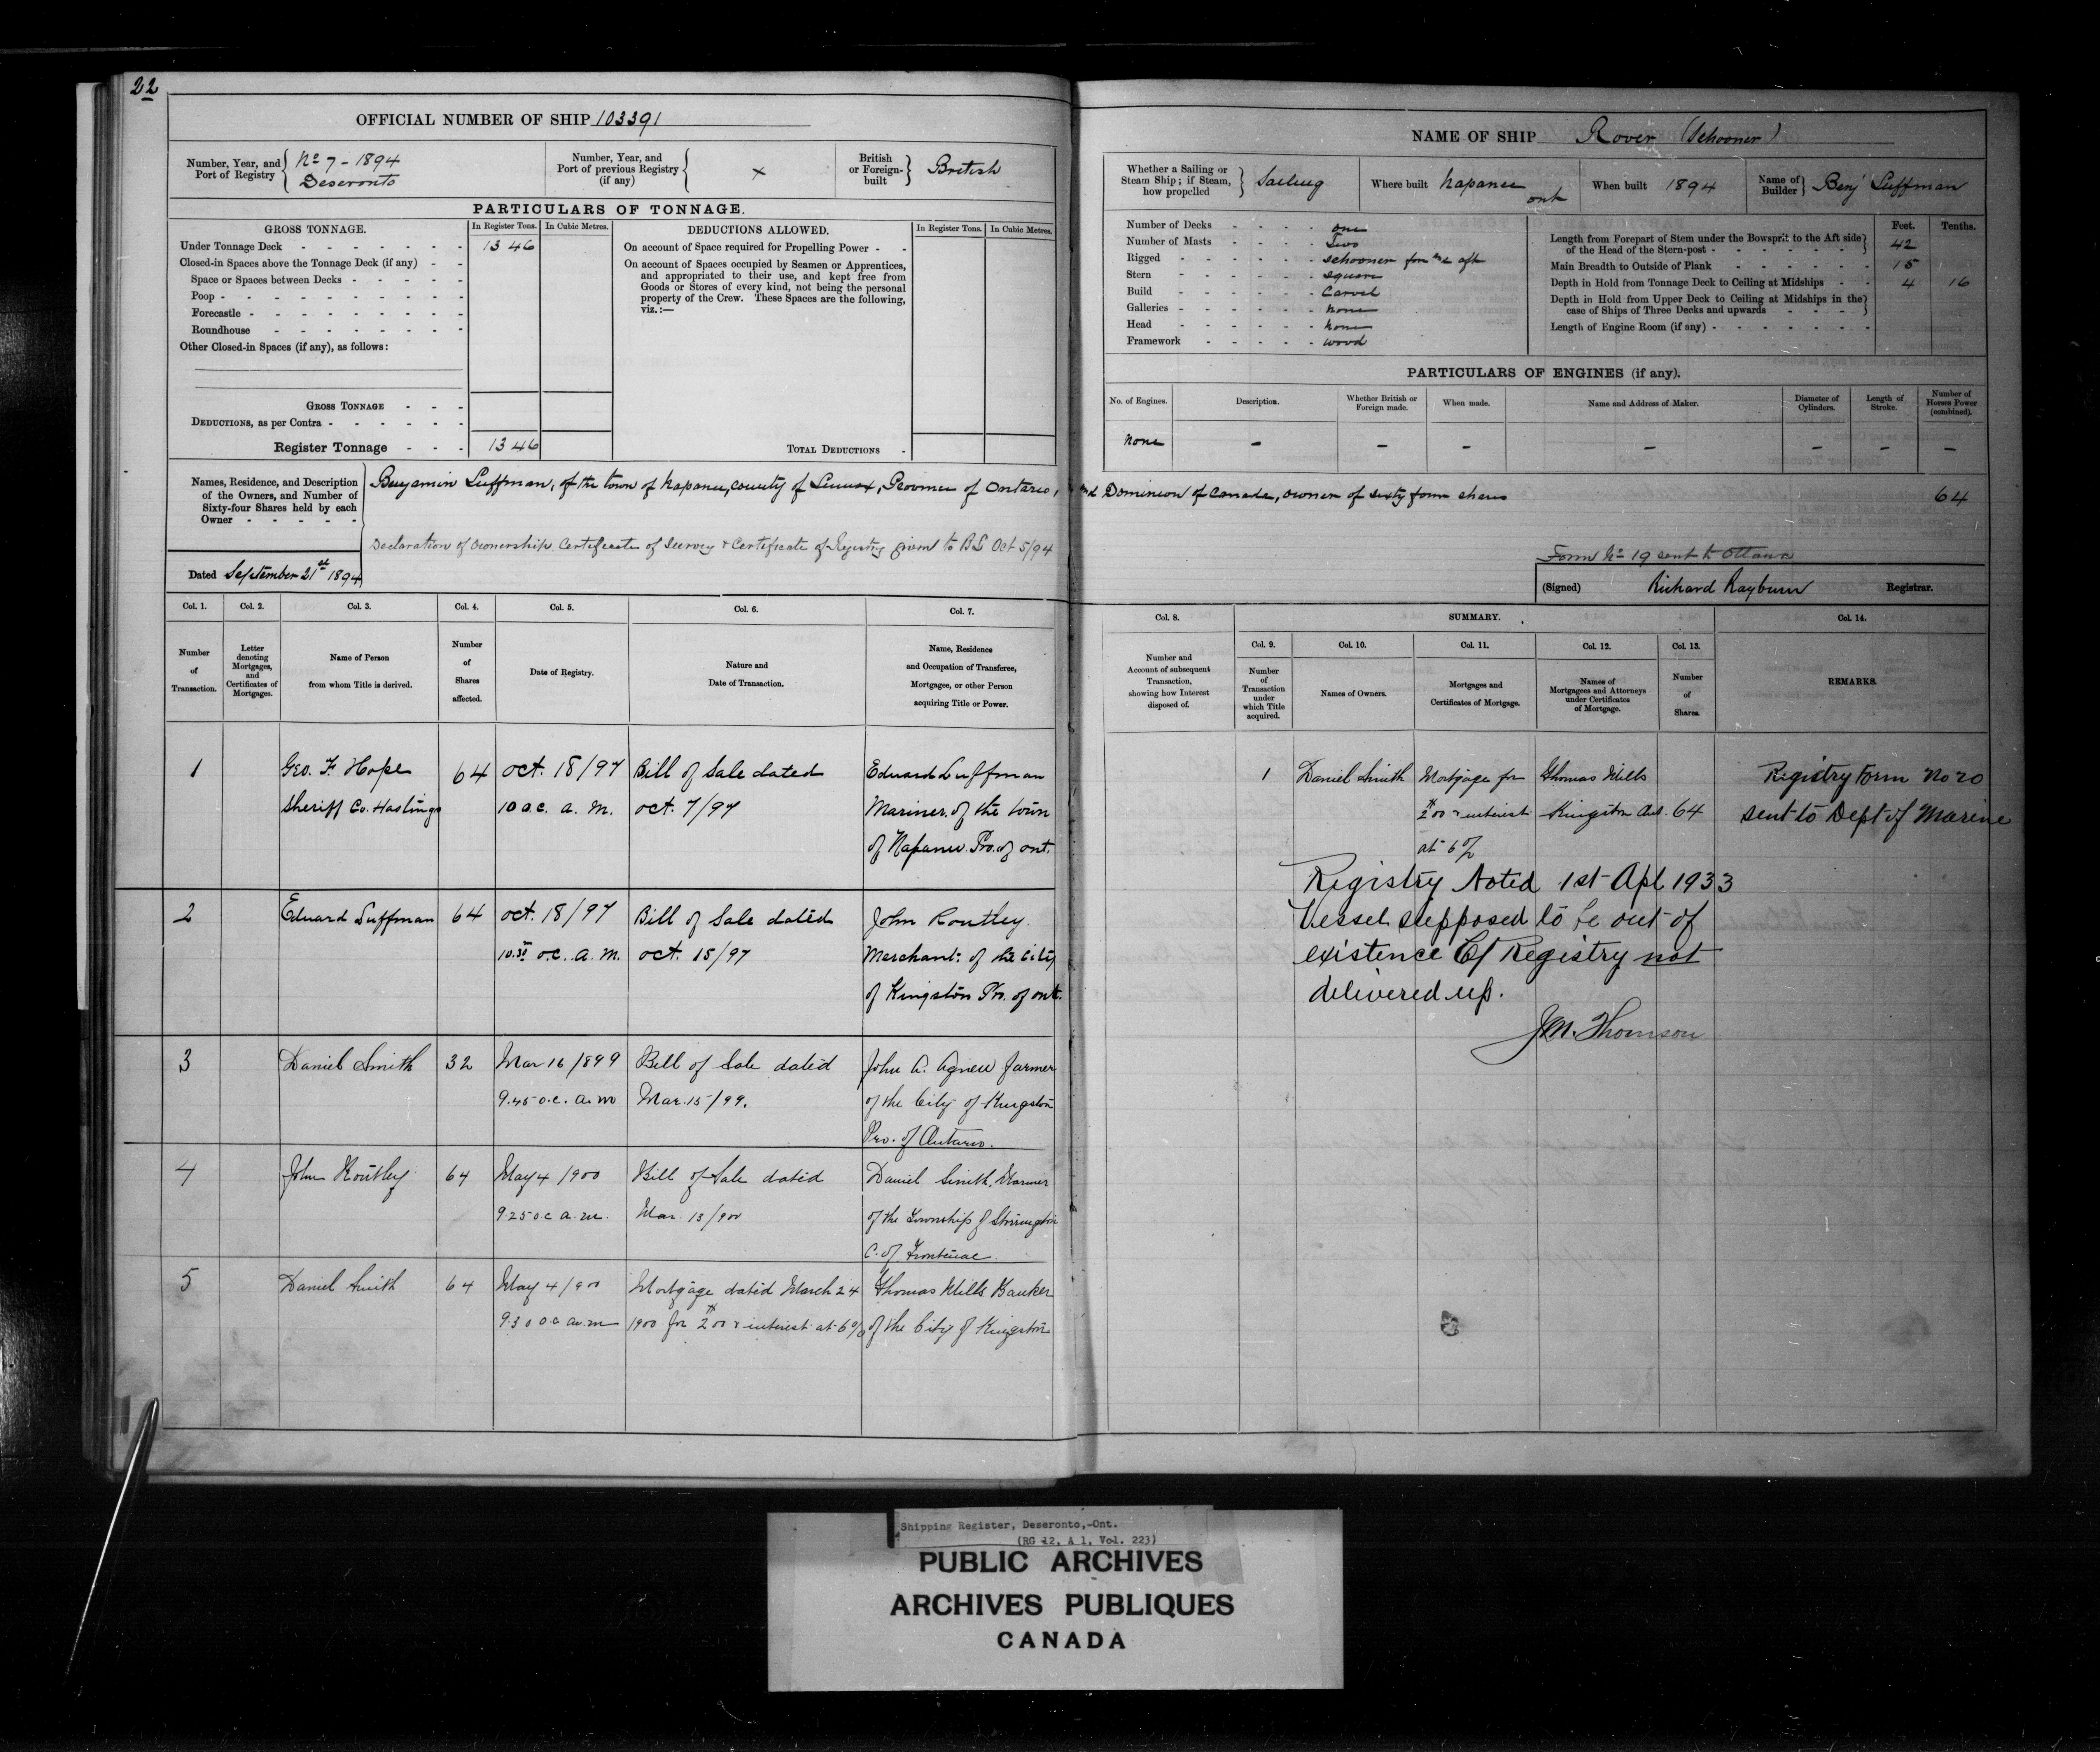 22
OFFICIAL NUMBER OF SHIP 103391
Number, Year, and Port of Registry
No 7 - 1894
Deseronto
Number, Year, and Port of previous Registry (if any)
×
British or Foreign-built
British
PARTICULARS OF TONNAGE.
GROSS TONNAGE.
In Register Tons.
In Cubic Metres.
DEDUCTIONS ALLOWED.
In Register Tons.
In Cubic Metres.
Under Tonnage Deck - 13 46
Closed-in Spaces above the Tonnage Deck (if any) - -
Space or Spaces between Decks -
Poop -
Forecastle -
Roundhouse -
Other Closed-in Spaces (if any), as follows:
On account of Space required for Propelling Power - -
On account of Spaces occupied by Seamen or Apprentices,
and appropriated to their use, and kept free from
Goods or Stores of every kind, not being the personal
property of the Crew. These Spaces are the following,
viz.:—
GROSS TONNAGE - - -
DEDUCTIONS, as per Contra -
Register Tonnage - - - 13 46
TOTAL DEDUCTIONS -
Names, Residence, and Description
of the Owners, and Number of
Sixty-four Shares held by each
Owner - - - - -
Benjamin Luffman, of the town of Napanee, county of Lennox, Province of Ontario, and Dominion of Canada, owner of sixty four shares 64
Declaration of Ownership, Certificate of Survey & Certificate of Registry given to BL Oct 5/94
Form No 19 sent to Ottawa
Dated September 21st 1894
(Signed) Richard Rayburn Registrar.
NAME OF SHIP Rover (Schooner)
Whether a Sailing or Steam Ship; if Steam, how propelled
Sailing
Where built Napanee Ont
When built 1894
Name of Builder Benj Luffman
Number of Decks - one
Number of Masts - Two
Rigged - schooner fore & aft
Stern - square
Build - Carvel
Galleries - none
Head - none
Framework - wood
Feet. Tenths.
Length from Forepart of Stem under the Bowsprit to the Aft side
of the Head of the Stern-post - 42
Main Breadth to Outside of Plank - 15
Depth in Hold from Tonnage Deck to Ceiling at Midships - - 4 16
Depth in Hold from Upper Deck to Ceiling at Midships in the
case of Ships of Three Decks and upwards - - -
Length of Engine Room (if any) -
PARTICULARS OF ENGINES (if any).
No. of Engines.
Description.
Whether British or Foreign made.
When made.
Name and Address of Maker.
Diameter of Cylinders.
Length of Stroke.
Number of Horses Power (combined).
None - - - - - - -
Col. 1.
Col. 2.
Col. 3.
Col. 4.
Col. 5.
Col. 6.
Col. 7.
Number of Transaction.
Letter denoting Mortgages, and Certificates of Mortgages.
Name of Person from whom Title is derived.
Number of Shares affected.
Date of Registry.
Nature and Date of Transaction.
Name, Residence and Occupation of Transferee, Mortgagee, or other Person acquiring Title or Power.
1 Geo. F. Hope 64 Oct. 18/97 Bill of Sale dated Edward Luffman
Sheriff Co. Hastings 10 o.c. a.m. Oct. 7/97 Mariner of the town
of Napanee Pro. of Ont.
2 Edward Luffman 64 Oct. 18/97 Bill of Sale dated John Routley
10.30 o.c. a.m. Oct. 15/97 Merchant of the City
of Kingston Pro. of Ont.
3 Daniel Smith 32 Mar 16/899 Bill of Sale dated John A. Agnew farmer
9.45 o.c. a.m Mar. 15/99. of the City of Kingston
Pro. of Ontario.
4 John Routley 64 May 4/900 Bill of Sale dated Daniel Smith, Mariner
9.25 o.c a.m. Mar. 13/900 of the Township of Storrington
C. of Frontenac
5 Daniel Smith 64 May 4/900 Mortgage dated March 24 Thomas Mills Banker
9.30 o.c a.m 1900 for $200 & interest at 6% of the City of Kingston
Col. 8.
Number and Account of subsequent Transaction, showing how Interest disposed of.
SUMMARY.
Col. 9.
Col. 10.
Col. 11.
Col. 12.
Col. 13.
Col. 14.
Number of Transaction under which Title acquired.
Names of Owners.
Mortgages and Certificates of Mortgage.
Names of Mortgagees and Attorneys under Certificates of Mortgage.
Number of Shares.
REMARKS.
1 Daniel Smith Mortgage for Thomas Mills Registry Form No 20
$200 & interest Kingston Ont. 64 sent to Dept of Marine
at 6%
Registry Noted 1st Apl 1933
Vessel supposed to be out of
existence Cf Registry not
delivered up.
JM. Thomson
Shipping Register, Deseronto,-Ont.
(RG 12, A 1, Vol. 223)
PUBLIC ARCHIVES
ARCHIVES PUBLIQUES
CANADA